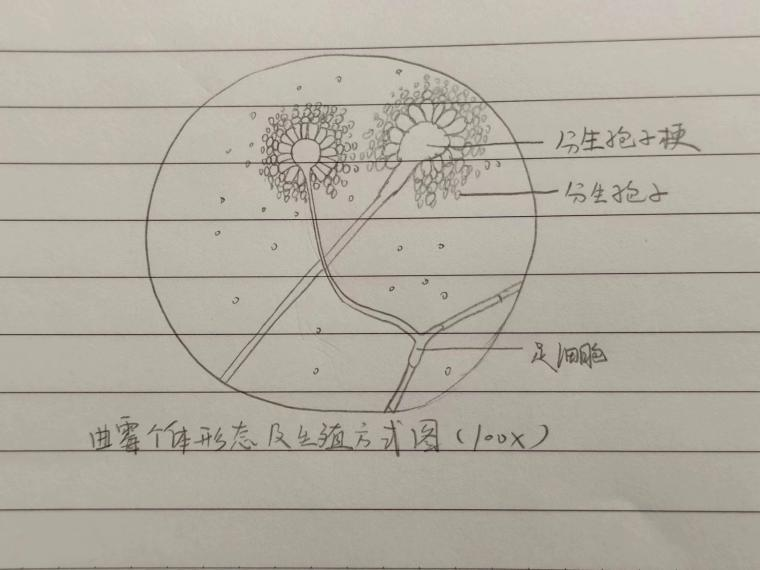 分生孢子梗
分生孢子
足细胞
曲霉个体形态及生殖方式图(100X)